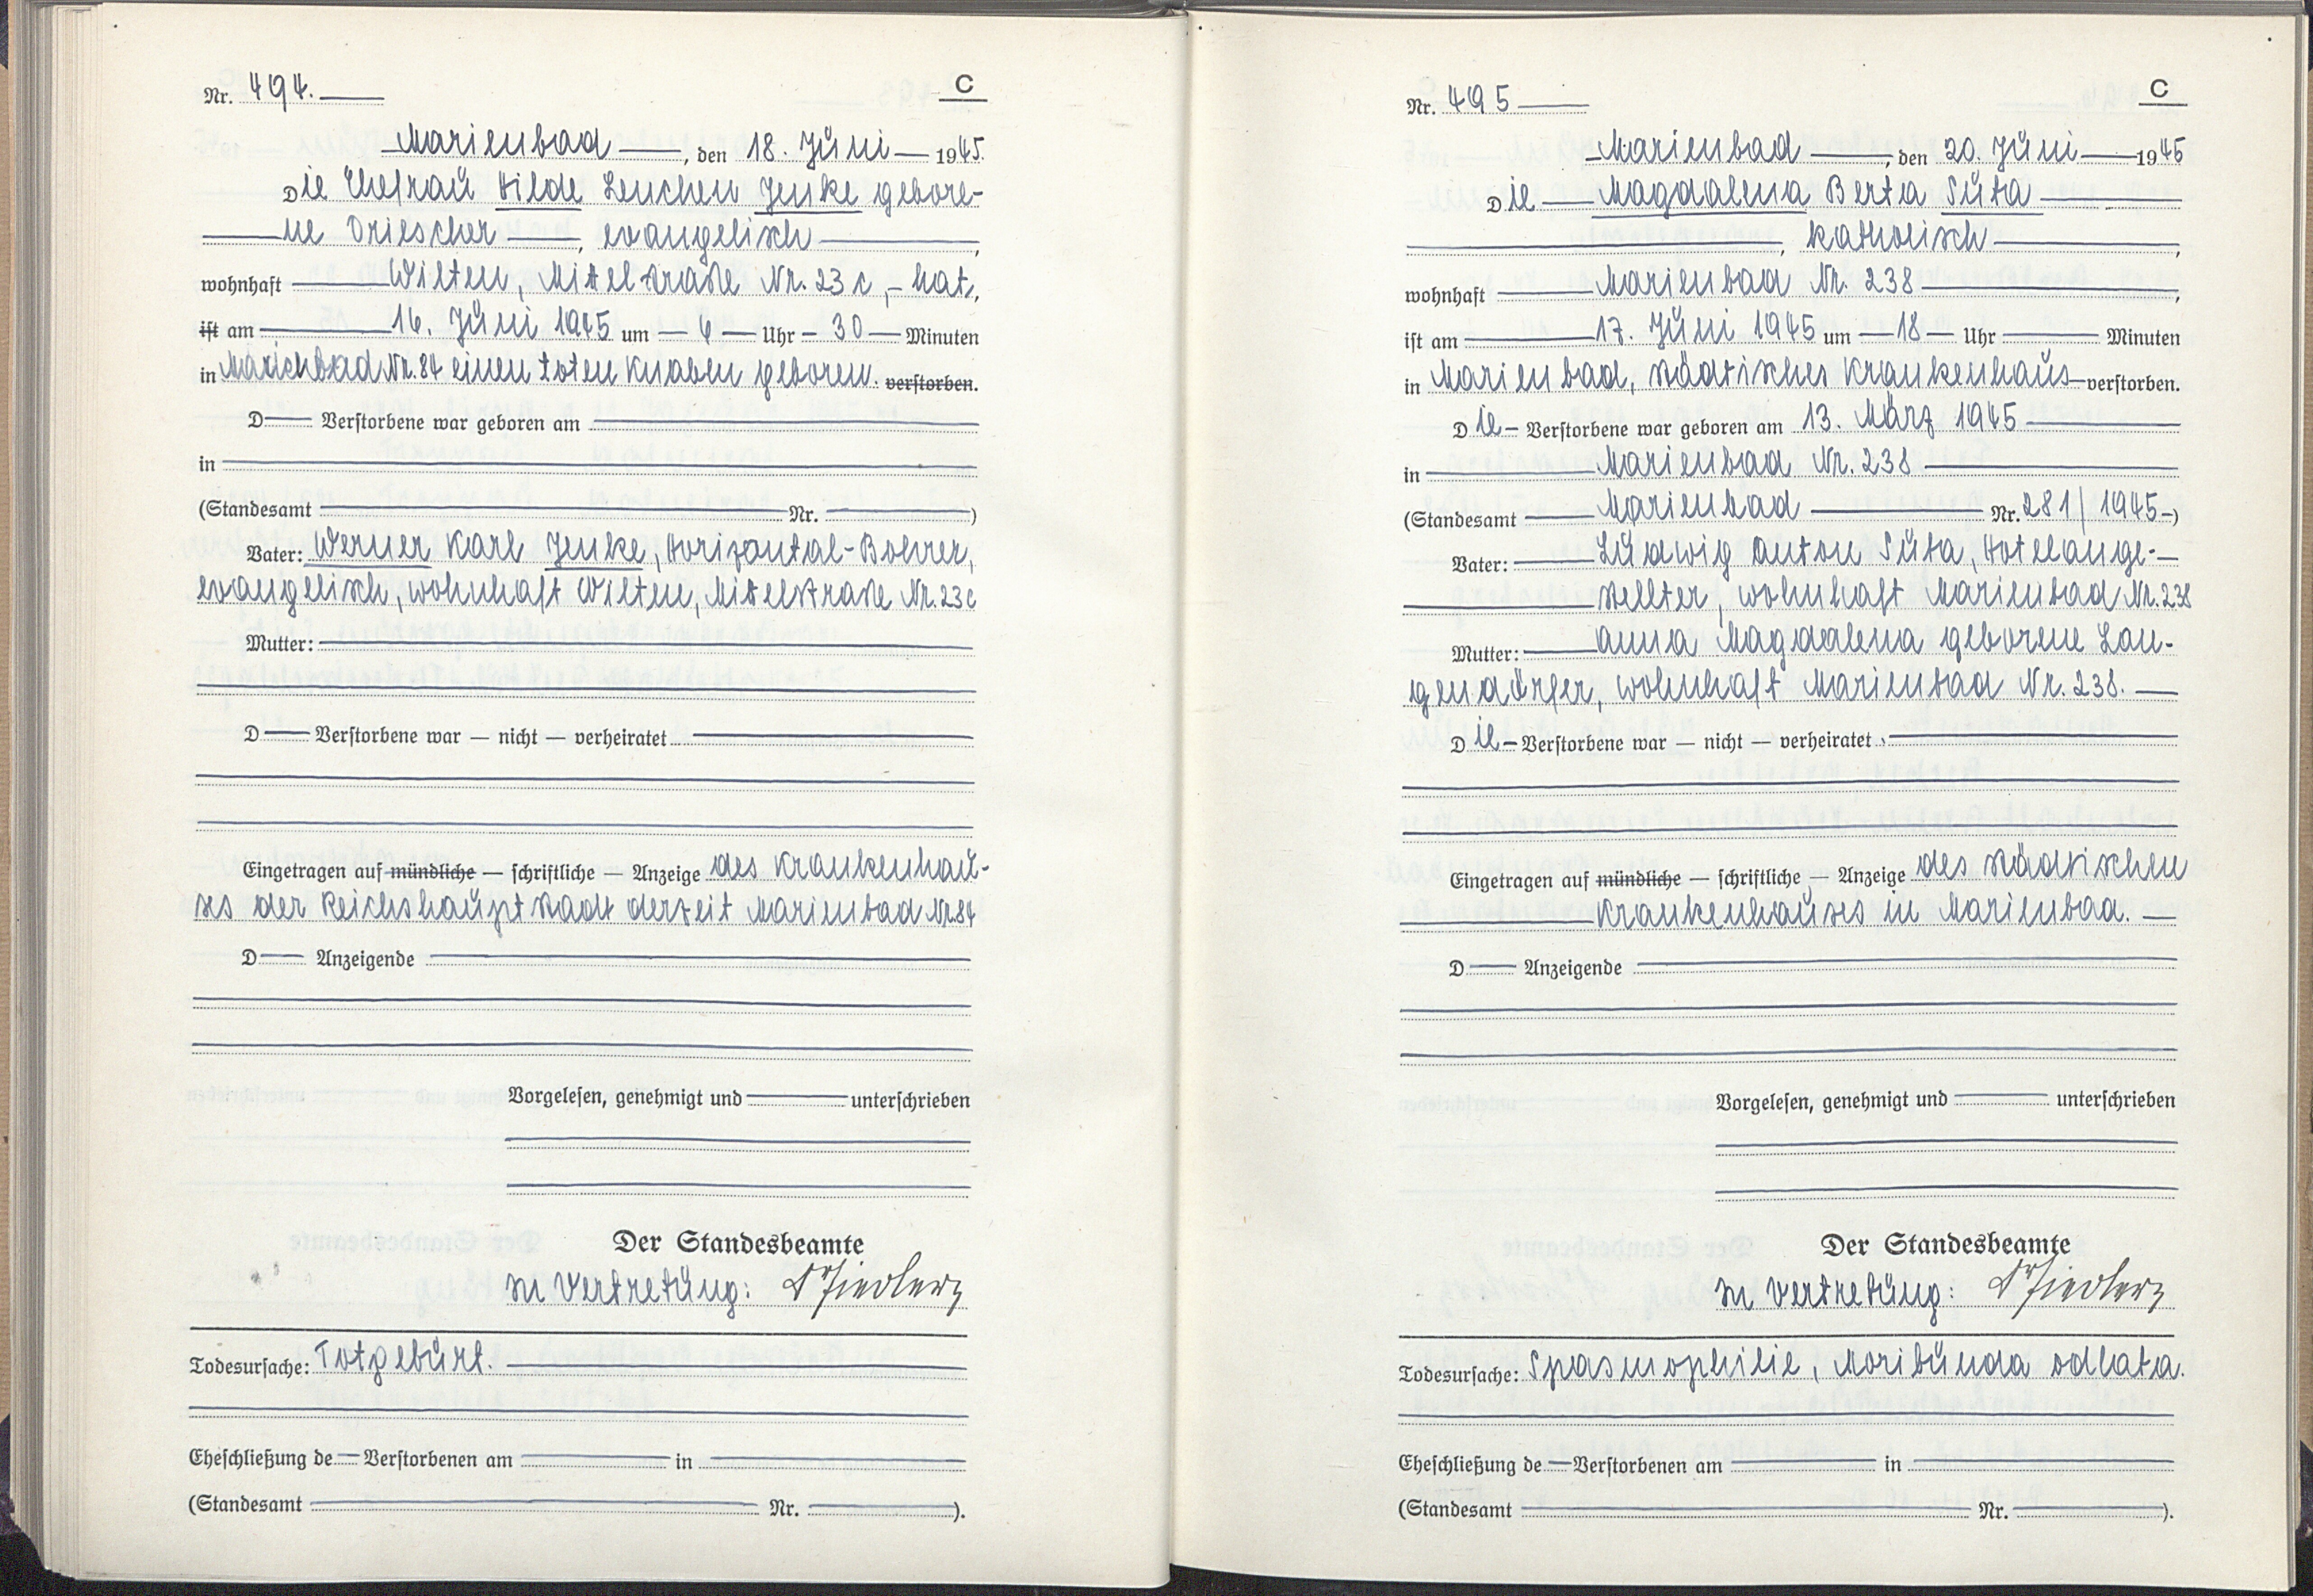 Nr. 494.
C
Marienbad, den 18. Juni 1945.
Die Ehefrau Hilde Lenchen Jenke gebore-
ne Driescher, evangelisch,
wohnhaft Wilten, Mittelstraße Nr. 23 c, - hat,
ist am 16. Juni 1945 um 6 Uhr 30 Minuten
in Marienbad Nr. 84 einen toten Knaben geboren. verstorben.
D Verstorbene war geboren am
in
(Standesamt Nr. )
Vater: Werner Karl Jenke, Horizontal-Bohrer,
evangelisch, wohnhaft Wilten, Mittelstraße Nr. 23c
Mutter:
D Verstorbene war — nicht — verheiratet
Eingetragen auf mündliche — schriftliche — Anzeige des Krankenhau-
ses der Reichshauptstadt derzeit Marienbad Nr. 84
D Anzeigende
Vorgelesen, genehmigt und unterschrieben
Der Standesbeamte
In Vertretung:
Todesursache: Totgeburt.
Eheschließung de Verstorbenen am in
(Standesamt Nr. ).
Nr. 495
C
Marienbad, den 20. Juni 1945
Die Magdalena Berta Suta
, katholisch,
wohnhaft Marienbad Nr. 238,
ist am 17. Juni 1945 um 18 Uhr Minuten
in Marienbad, städtisches Krankenhaus verstorben.
Die Verstorbene war geboren am 13. März 1945
in Marienbad Nr. 238
(Standesamt Marienbad Nr. 281/1945)
Vater: Ludwig Anton Suta, Hotelange-
stellter, wohnhaft Marienbad Nr. 238
Mutter: Anna Magdalena geborene Lan-
gendörfer, wohnhaft Marienbad Nr. 238.
Die Verstorbene war — nicht — verheiratet.
Eingetragen auf mündliche — schriftliche — Anzeige des städtischen
Krankenhauses in Marienbad.
D Anzeigende
Vorgelesen, genehmigt und unterschrieben
Der Standesbeamte
In Vertretung:
Todesursache: Spasmophilie, Moribunda odlata.
Eheschließung de Verstorbenen am in
(Standesamt Nr. ).